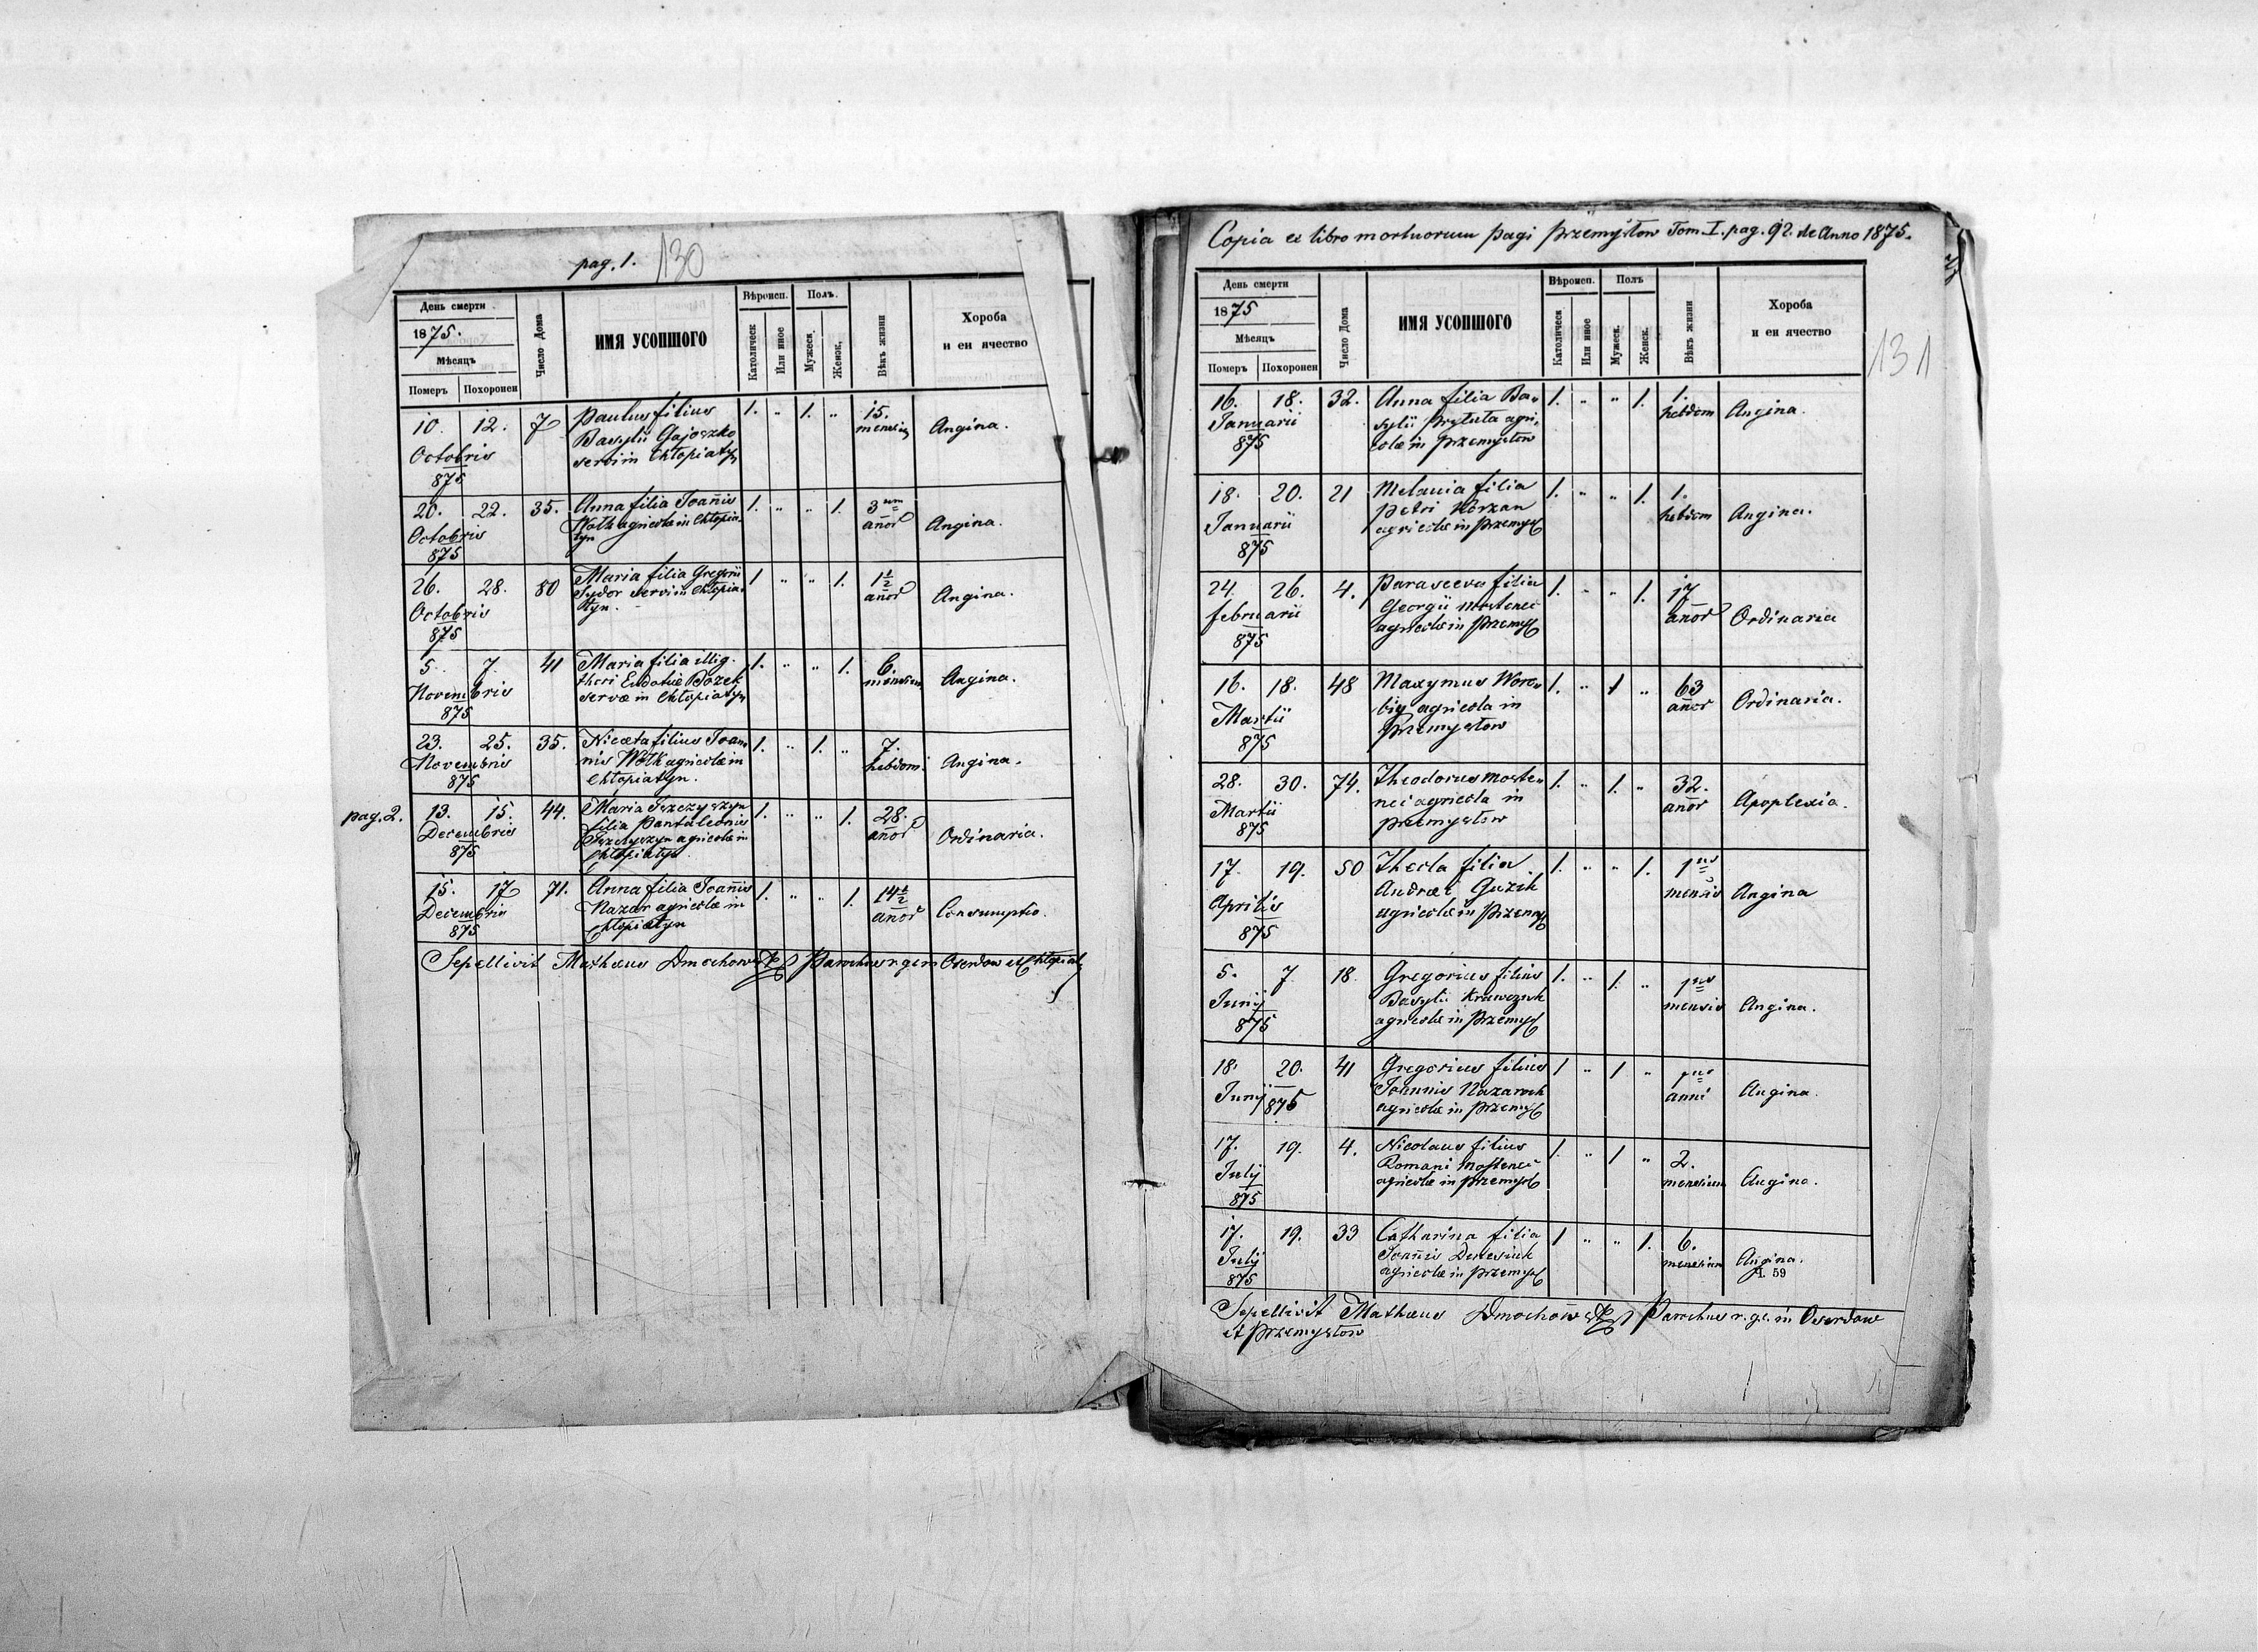 pag. 1. 130
День смерти
1875.
Мѣсяцъ
Померъ Похоронен
Число Дома
ИМЯ УСОПШОГО
Вѣроисп. Полъ.
Католическ Или иное Мужеск. Женск.
Вѣкъ жизни
Хороба
и еи ячество
10. 12. 7 Paulus filius 1. " 1. " 15. Angina.
Octobris Basylii Gajoszko mensium
875 servi in Chłopiatyn
20. 22. 35. Anna filia Joañis 1. " " 1. 3um Angina.
Octobris Wołk agricolæ in Chłopia- añor
875 tyn
26. 28. 80 Maria filia Gregorii 1 " " 1. 1 1/2 Angina.
Octobris Sydor servi in Chłopia- añor
875 tyn.
5. 7. 41 Maria filia illig. 1. " " 1. 6. Angina.
Novembris thori Eudoxiæ Bożek mensium
875 servæ in Chłopiatyn
23. 25. 35. Nicæta filius Joan- 1. " 1. " 7. Angina.
Novembris nis Wołk agricolæ in hebdom.
875 Chłopiatyn.
pag. 2. 13. 15. 44. Maria 1. " " 1. 28. Ordinaria.
Decembris filia Pantaleonis añor
875 agricolæ in
Chłopiatyn.
15. 17 71. Anna filia Joañis 1. " " 1. 14 1/2 Consumptio.
Decembris Nazar agricolæ in añor
875 Chłopiatyn
Sepellivit Mathæus Parochus r. g. in Oserdow et Chłopiat.
Copia ex libro mortuorum pagi Przemysłow Tom. I. pag. 92. de Anno 1875.
131
День смерти
1875
Мѣсяцъ
Померъ Похоронен
Число Дома
ИМЯ УСОПШОГО
Вѣроисп. Полъ
Католическ Или иное Мужеск. Женск.
Вѣкъ жизни
Хороба
и еи ячество
16. 18. 32. Anna filia Ba- 1. " " 1. 1. Angina.
Januarii sylii Prytuła agri- hebdom
875 colæ in Przemysłow
18. 20. 21 Melania filia 1. " " 1. 1. Angina.
Januarii Petri Korzan hebdom
875 agricolæ in Przemysł
24. 26. 4. Parasceva filia 1. " " 1. 17 Ordinaria
februarii Georgii Mostenci añor
875 agricolæ in Przemysł
16. 18. 48 Maxymus 1. " 1 " 63 Ordinaria.
Martii agricola in añor
875 Przemysłow
28. 30. 74. Theodorus Moste- 1. " 1. " 32. Apoplexia.
Martii nci agricola in añor
875 Przemysłow
17. 19. 50 Thecla filia 1. " " 1. 1us Angina
Aprilis Andræe Guzik mensis
875 agricolæ in Przemysł
5. 7. 18 Gregorius filius 1. " 1. " 1us Angina.
Junij Basylii Krawczuk mensis
875 agricolæ in Przemysł
18. 20. 41 Gregorius filius 1 " 1 " 1us Angina.
Junij 875 Johannis Nazarock anni
agricolæ in Przemysł
17. 19. 4. Nicolaus filius 1. " 1 " 2. Angina.
Julij Romani Mostenci mensium
875 agricolæ in Przemysł
17. 19. 33 Catharina filia 1 " " 1. 6. Angina.
Julij Joañis mensium
875 agricolæ in Przemysł
A. 59
Sepellivit Mathæus Parochus r. g. c. in Oserdow
et Przemysłow